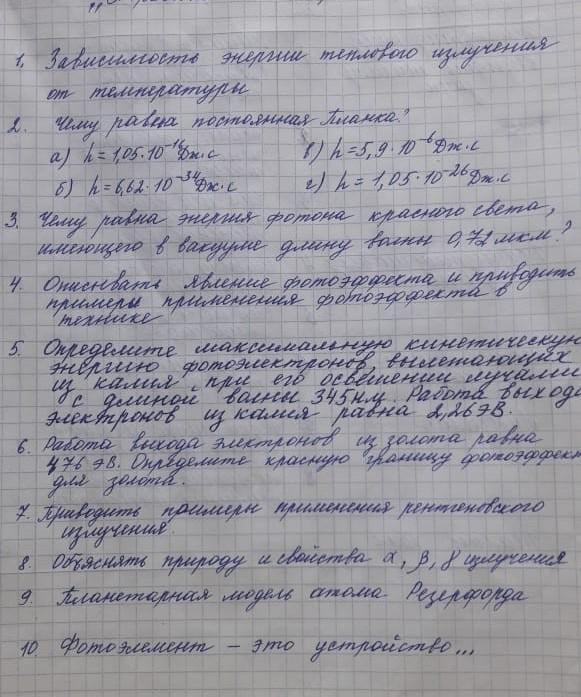 1. Зависимость энергии теплового излучения
от температуры
2. Чему равна постоянная Планка?
а) h = 1,05·10⁻¹⁶ Дж·с в) h = 5,9·10⁻⁶ Дж·с
б) h = 6,62·10⁻³⁴ Дж·с г) h = 1,05·10⁻²⁶ Дж·с
3. Чему равна энергия фотона красного света,
имеющего в вакууме длину волны 0,72 мкм?
4. Описывать явление фотоэффекта и приводить
примеры применения фотоэффекта в
технике
5. Определите максимальную кинетическую
энергию фотоэлектронов, вылетающих
из калия при его освещении лучами
с длиной волны 345нм. Работа выхода
электронов из калия равна 2,26эВ.
6. Работа выхода электронов из золота равна
4,76 эВ. Определите красную границу фотоэффект
для золота.
7. Приводить примеры применения рентгеновского
излучения.
8. Объяснять природу и свойства α, β, γ излучения
9. Планетарная модель атома Резерфорда
10. Фотоэлемент – это устройство...